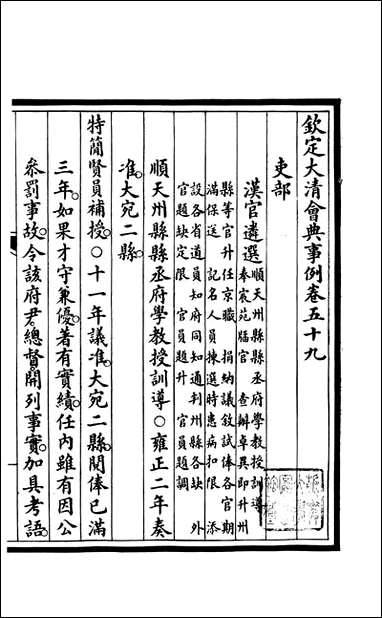 欽定大清會典事例卷五十九
吏部
漢官遴選
順天州縣縣丞府學教授訓導
奉宸苑牐官　查辦卓異即升州
縣等官升任京職　捐納議敘試俸各官期
滿保送　記名人員揀選時患病扣限　添
設各省道員知府同知通判州縣各缺　外
官題缺定限　官員題升　官員題調
順天州縣縣丞府學教授訓導○雍正二年奏
准大宛二縣
特簡賢員補授○十一年議准大宛二縣閱俸已滿
三年如果才守兼優著有實績任內雖有因公
叅罰事故令該府尹總督開列事實加具考語